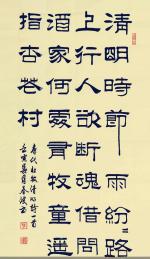 清明時節雨紛〻路
上行人欲斷魂借問
酒家何處有牧童遥
指杏花村
唐代杜牧清明詩一首